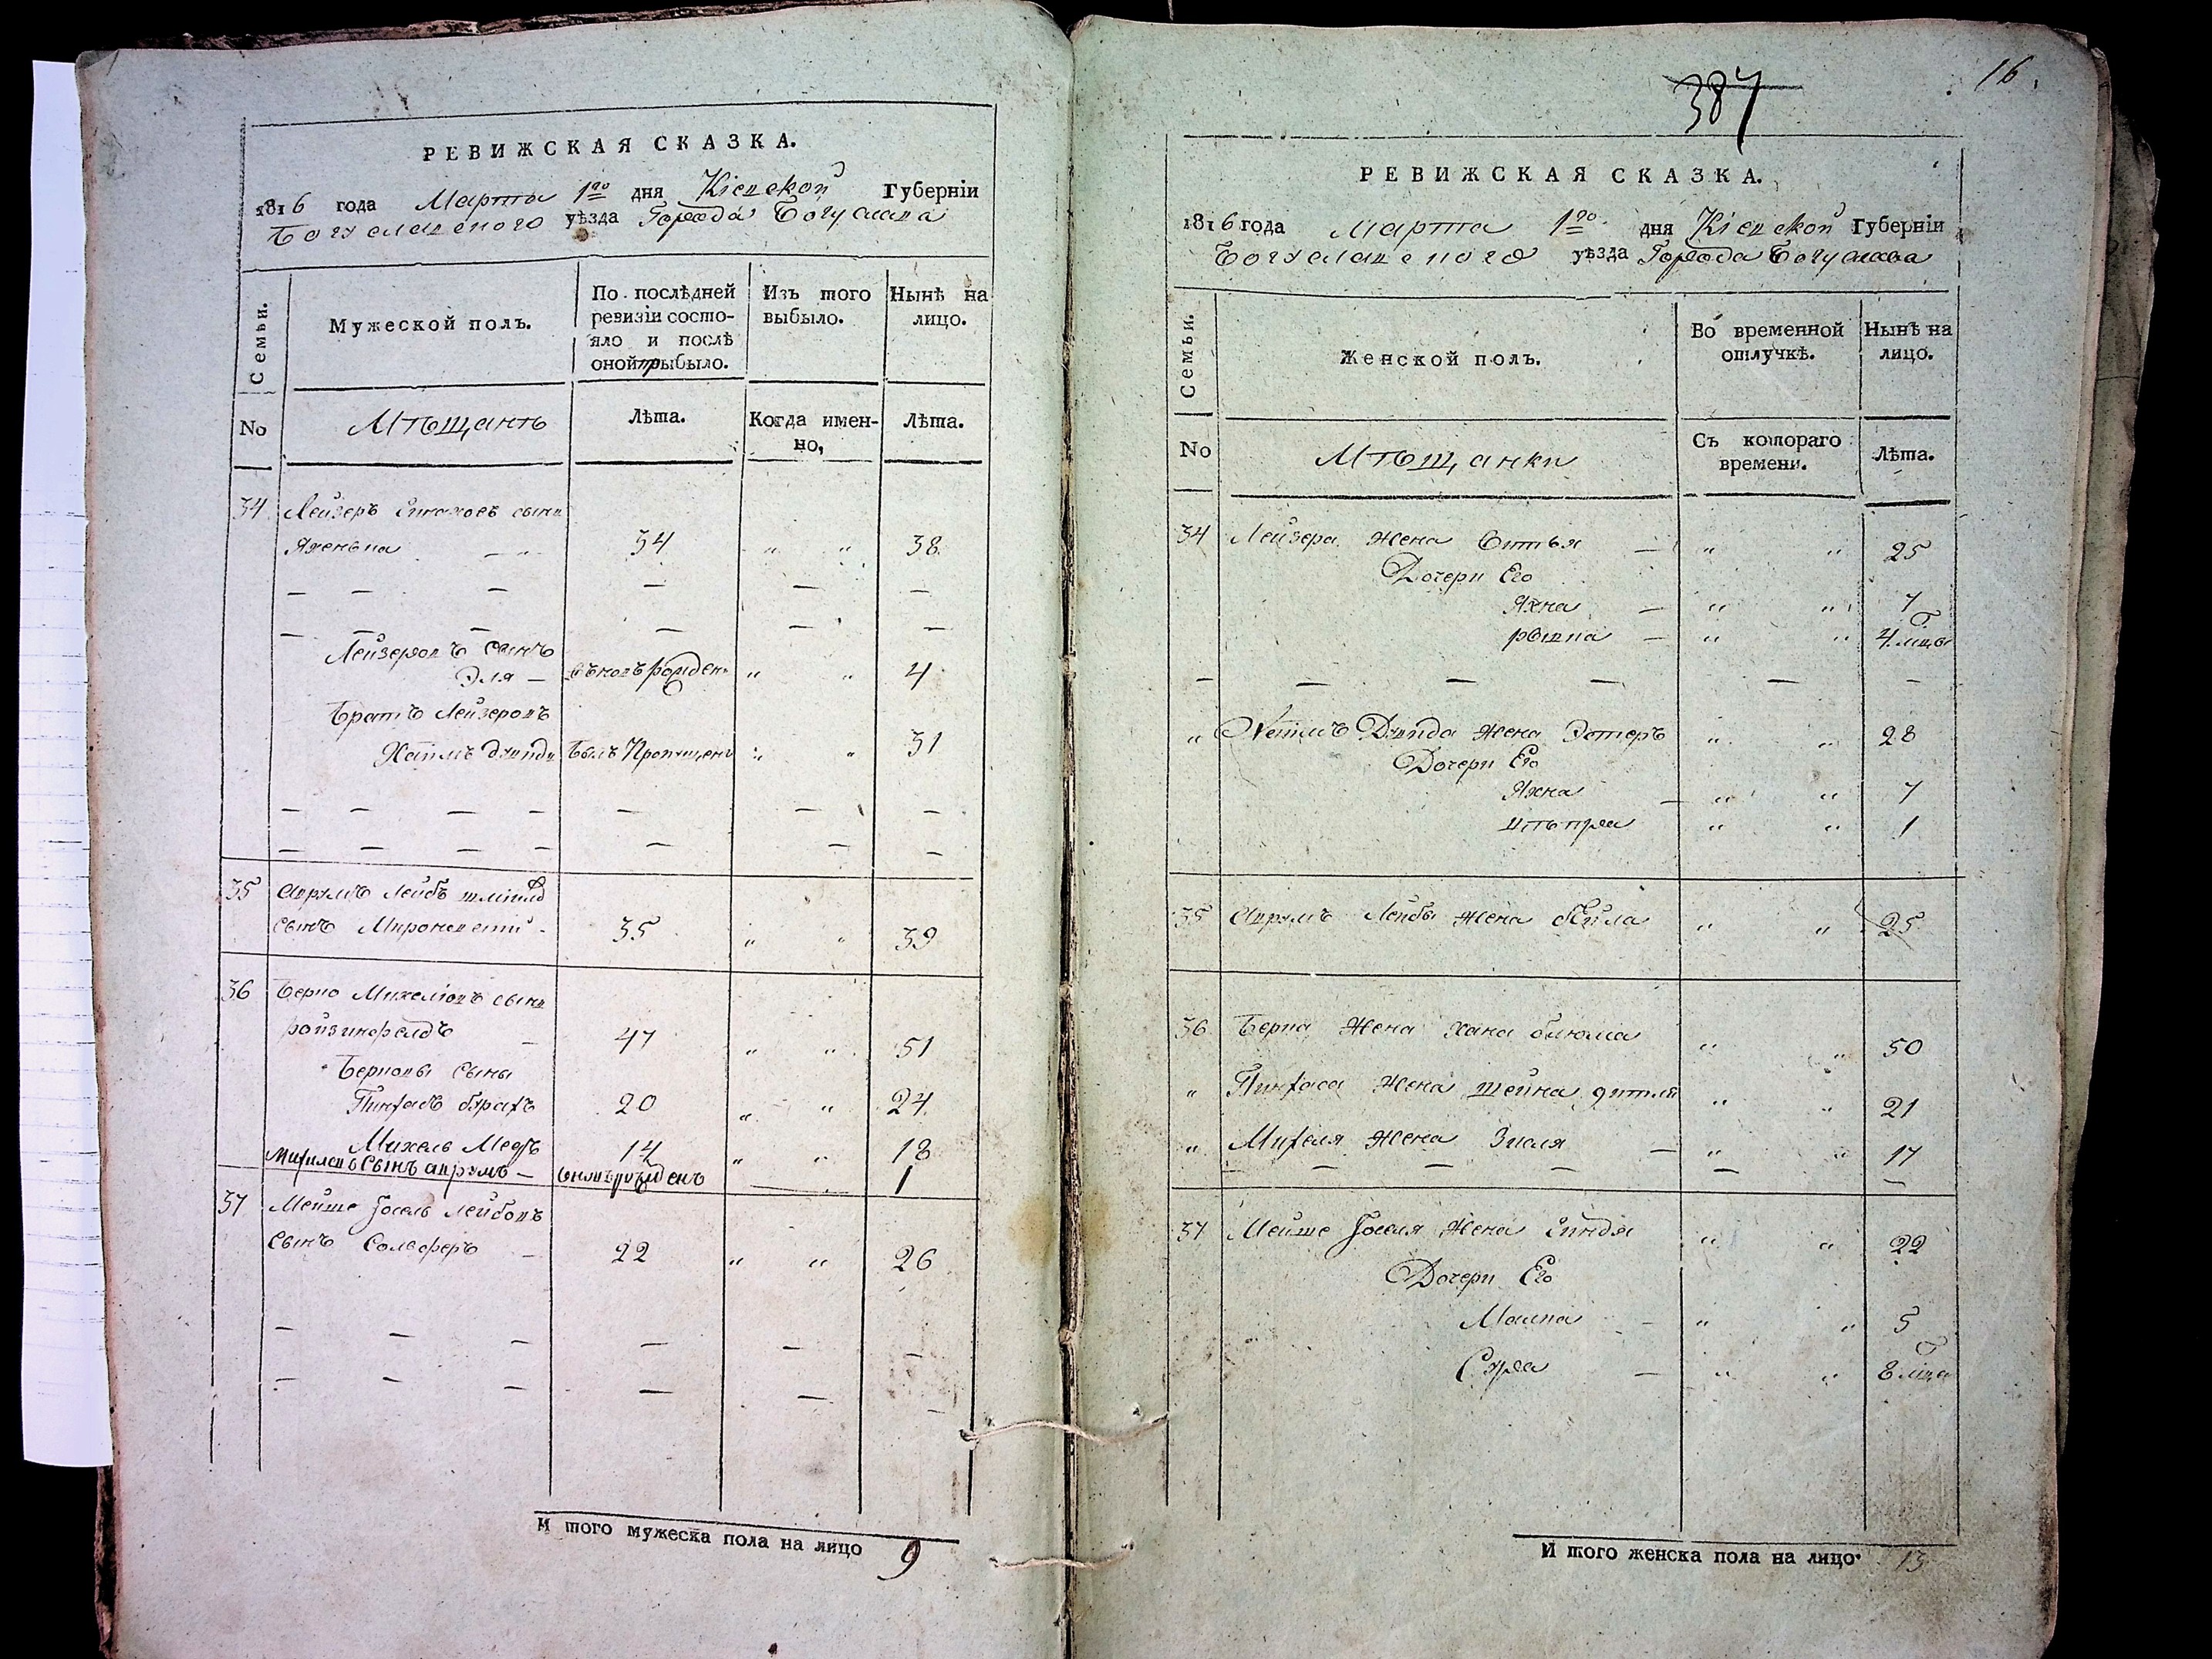 РЕВИЖСКАЯ СКАЗКА.
1816 года Марта 1го дня Кіевской Губерніи
Богуславского уѣзда Города Богуслава
Семьи.
Мужеской полъ.
По послѣдней ревизіи состояло и послѣ оной прыбыло.
Изъ того выбыло.
Нынѣ на лицо.
No
Мѣщанъ
Лѣта.
Когда именно,
Лѣта.
34 Лейзеръ сынъ
34 " " 38
— — — — — —
— — — — — —
Лейзеровъ сынъ
Эля — вновъ рожден " " 4
Братъ Лейзеровъ
Хаимъ Давидъ былъ Пропущенъ " " 31
— — — — — — —
— — — — — — —
35 Аврумъ Лейбъ
сынъ 35 " " 39
36 Берко сынъ
ройзинфелдъ — 47 " " 51
Берковы сыны
Пинхасъ 20 " " 24
Михель 14 " " 18
сынъ аврумъ — " 1
37 Мейше Іосель Лейбовъ
сынъ — 22 " " 26
— — — — — —
— — — — — —
И того мужеска пола на лицо 9
16.
387
РЕВИЖСКАЯ СКАЗКА.
1816 года Марта 1го дня Кіевской Губерніи
Богуславского уѣзда Города Богуслава
Семьи.
Женской полъ.
Во временной отлучкѣ.
Нынѣ на лицо.
No
Мѣщанки
Съ котораго времени.
Лѣта.
34 Лейзера жена — " " 25
Дочери Его
Яхна — " " 7
ривка — " " 4 мцы
— — — — — —
" Хаимъ Давида жена Эстеръ " " 28
Дочери Его
Яхна — " " 7
" " 1
35 Аврумъ Лейбы жена бейла " " 25
36 Берка жена хана блюма " " 50
" Пинхаса жена шейна " " 21
" Михеля жена Зисля — " " 17
— — — — — —
37 Мейше Іоселя жена Гиндя " " 22
Дочери Его
Малка — " " 5
Сура — " " 8 мца
И того женска пола на лицо 13